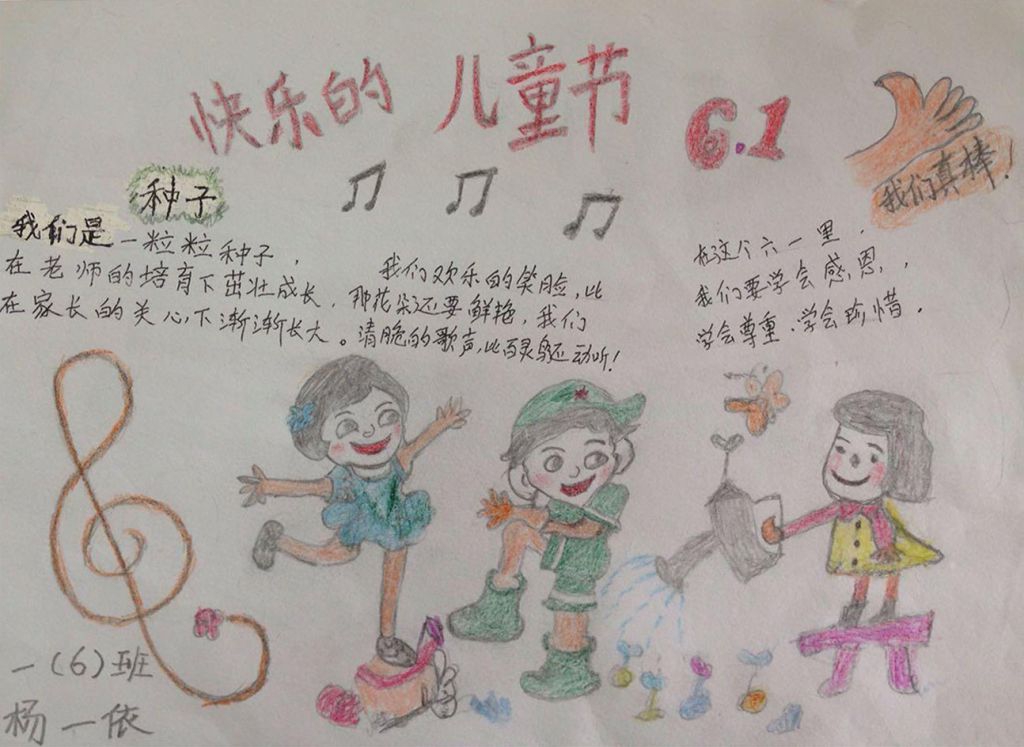 快乐的 儿童节
6.1
我们真棒!
种子
我们是一粒粒种子,
在老师的培育下茁壮成长,
在家长的关心下渐渐长大。
我们欢乐的笑脸,比
那花朵还要鲜艳,我们
清脆的歌声,比百灵还动听!
在这个六一里,
我们要学会感恩,
学会尊重、学会珍惜。
一(6)班
杨一依